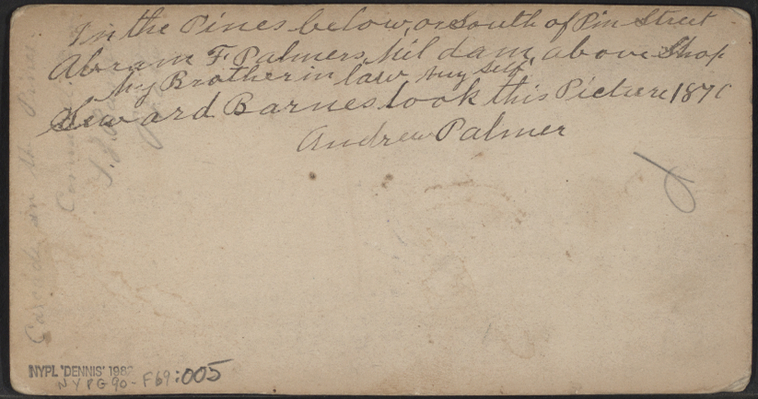 In the Pines below, or South of Pin Street
Abram F. Palmers, Mil dam, above Shop
My Brother in law, my self,
Seward Barnes took this Picture 187
Andrew Palmer
NYPL 'DENNIS' 198
NYPG90-F69:005